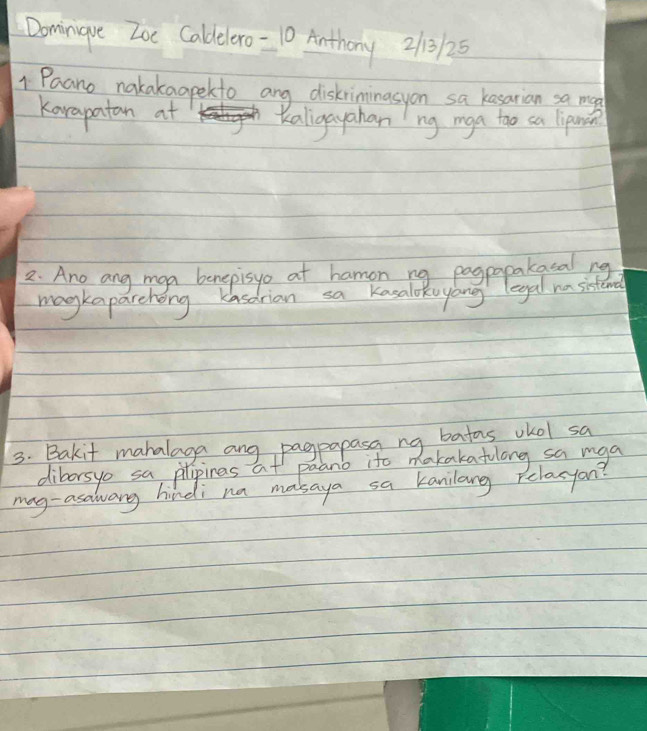 Dominique Zoe Caldelero - 10 Anthony 2/13/25
1 Paano nakakaapekto ang diskriminasyon sa kasarian sa mga
karapatan at kaligayahan ng mga tao sa lipunan?
2. Ano ang mga benepisyo at hamon ng pagpapakasal ng
magkaparehong kasarian sa kasalukuyang legal na sistema?
3. Bakit mahalaga ang pagpapasa ng batas ukol sa
diborsyo sa Pilipinas at paano ito makakatulong sa mga
mag-asawang hindi na masaya sa kanilang relasyon?